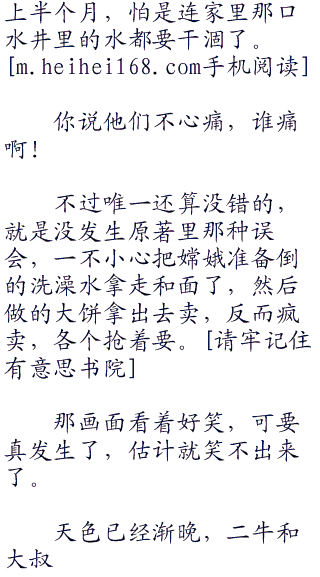 上半个月，怕是连家里那口
水井里的水都要干涸了。
[m.heihei168.com手机阅读]
你说他们不心痛，谁痛
啊！
不过唯一还算没错的，
就是没发生原著里那种误
会，一不小心把嫦娥准备倒
的洗澡水拿走和面了，然后
做的大饼拿出去卖，反而疯
卖，各个抢着要。[请牢记住
有意思书院]
那画面看着好笑，可要
真发生了，估计就笑不出来
了。
天色已经渐晚，二牛和
大叔